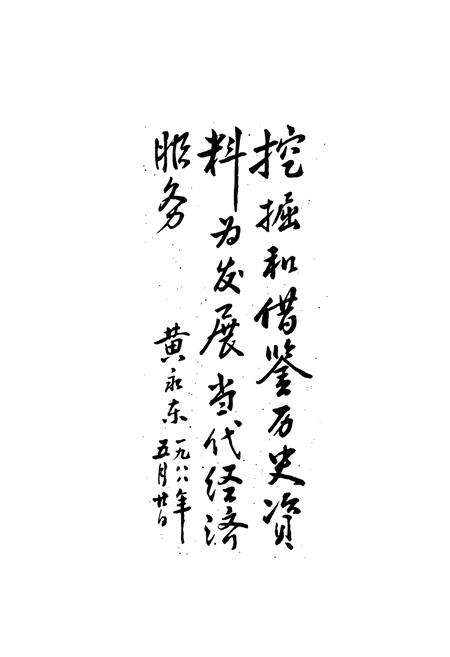 挖掘和借鉴历史资
料为发展当代经济
服务
黄永东
一九八八年
五月廿日